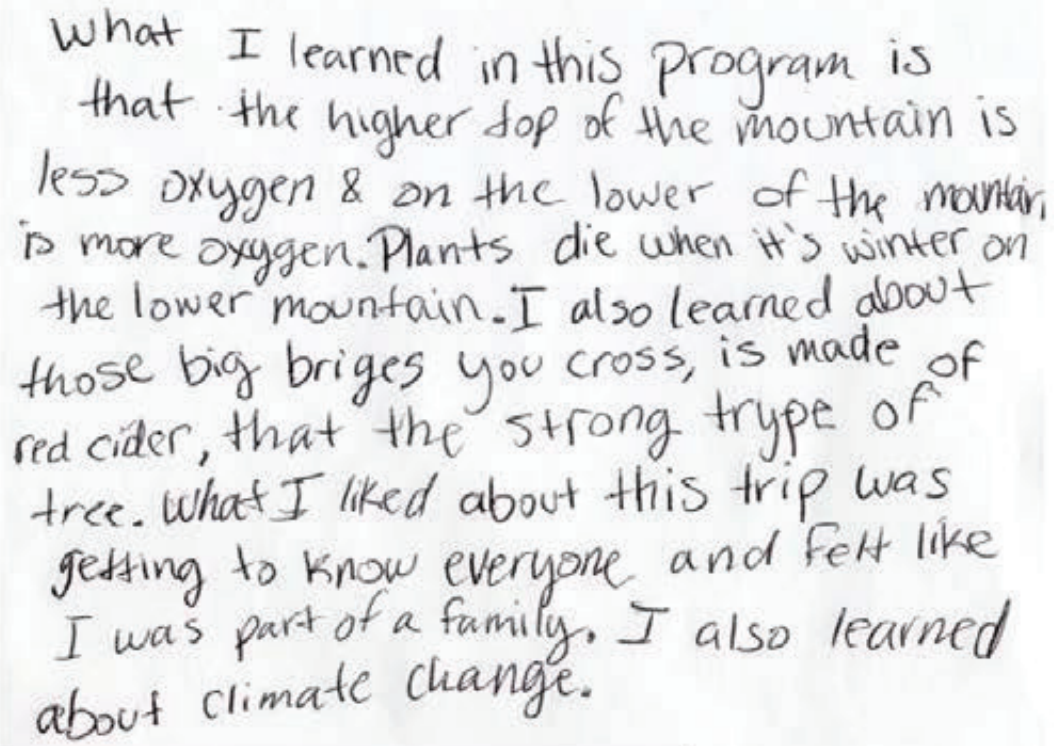 What I learned in this program is
that the higher top of the mountain is
less oxygen & on the lower of the mountain
is more oxygen. Plants die when it's winter on
the lower mountain. I also learned about
those big briges you cross, is made of
red cider, that the strong trype of
tree. What I liked about this trip was
getting to know everyone and felt like
I was part of a family. I also learned
about climate change.